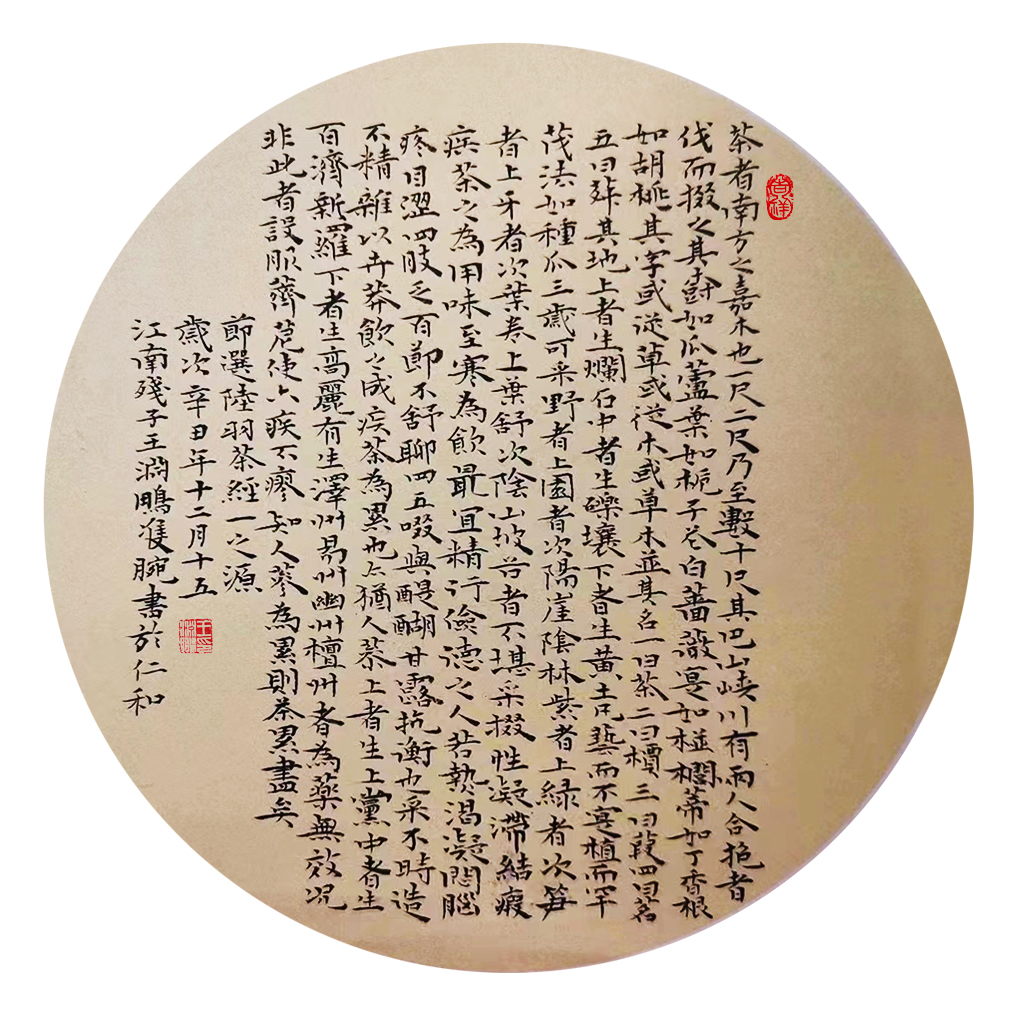 茶者南方之嘉木也一尺二尺乃至數十尺其巴山峽川有兩人合抱者
伐而掇之其樹如瓜蘆葉如梔子花白薔薇實如栟櫚蒂如丁香根
如胡桃其字或從草或從木或草木並其名一曰茶二曰檟三曰蔎四曰茗
五曰荈其地上者生爛石中者生礫壤下者生黃土凡藝而不實植而罕
茂法如種瓜三歲可采野者上園者次陽崖陰林紫者上綠者次笋
者上牙者次葉卷上葉舒次陰山坡谷者不堪采掇性凝滯結瘕
疾茶之為用味至寒為飲最宜精行儉德之人若熱渴凝悶腦
疼目澀四肢乏百節不舒聊四五啜與醍醐甘露抗衡也采不時造
不精雜以卉莽飲之成疾茶為累也亦猶人蔘上者生上黨中者生
百濟新羅下者生高麗有生澤州易州幽州檀州者為藥無效況
非此者設服薺苨使六疾不瘳知人蔘為累則茶累盡矣
節選陸羽茶經一之源
歲次辛丑年十二月十五
江南殘子王淵鵬隻腕書於仁和